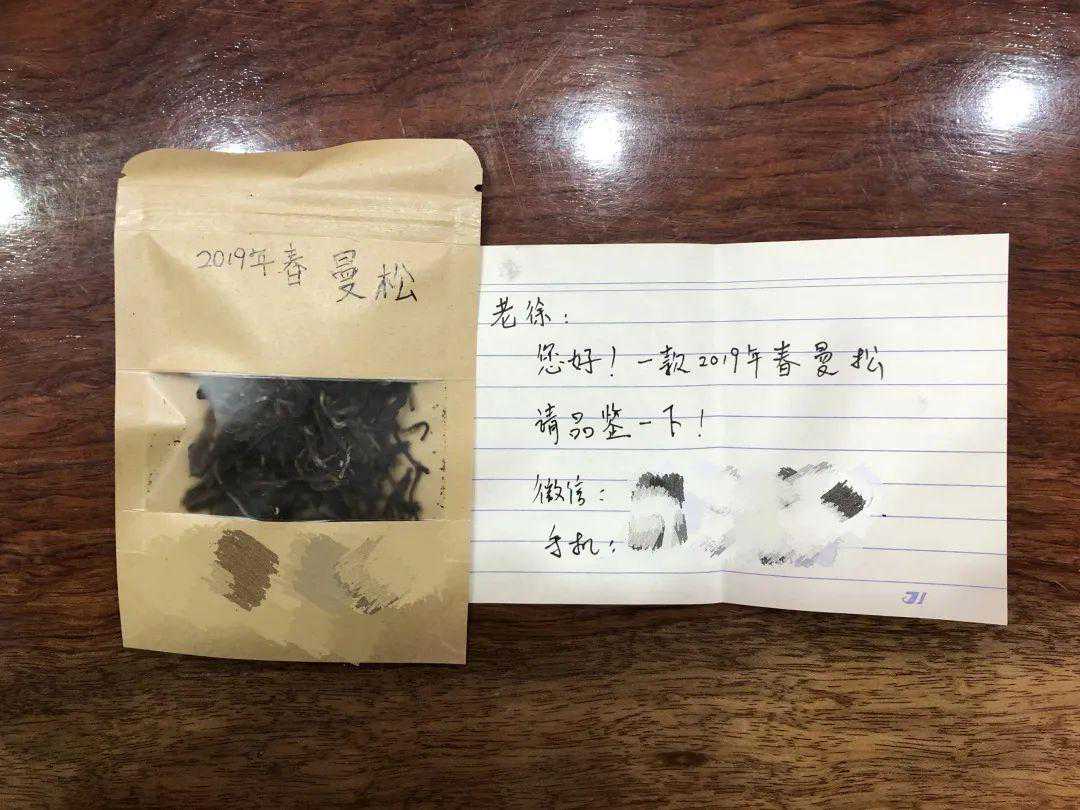 2019年春 曼松
老徐:
您好!一款2019年春曼松
请品鉴一下!
微信:
手机: